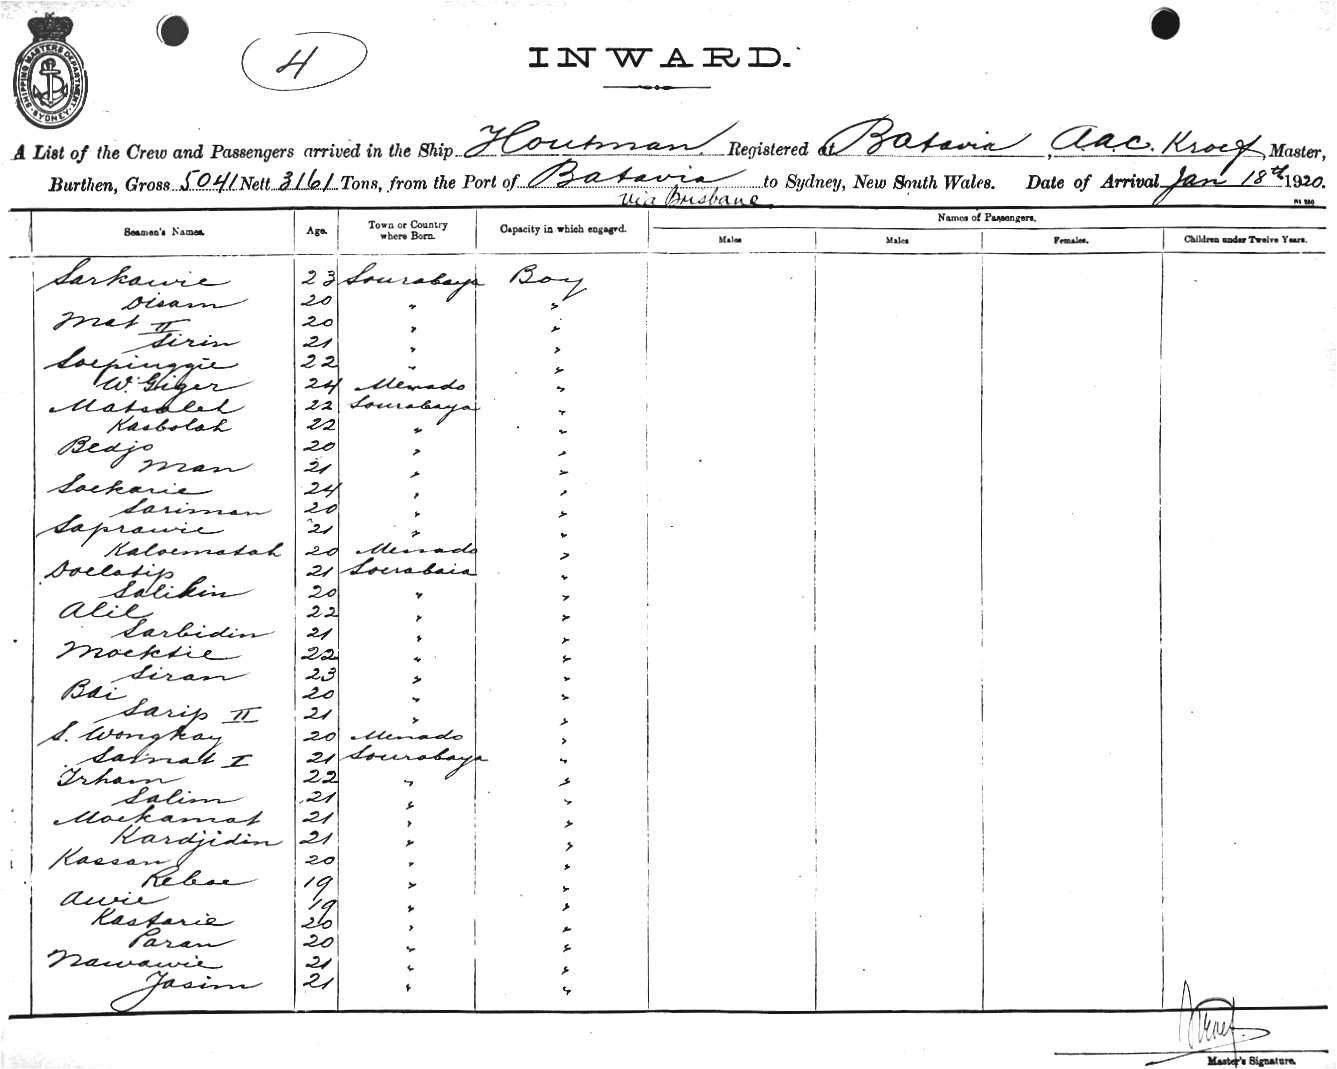 SHIPPING MASTERS DEPARTMENT SYDNEY
4
INWARD.
A List of the Crew and Passengers arrived in the Ship Houtman. Registered at Batavia, Aac. Kroef Master,
Burthen, Gross 5041 Nett 3161 Tons, from the Port of Batavia to Sydney, New South Wales. Date of Arrival Jan 18th 1920.
via Brisbane
Names of Passengers.
Seamen's Names. Age. Town or Country where Born. Capacity in which engaged. Males Males Females. Children under Twelve Years.
Sarkawie 23 Sourabaya Boy
Disam 20 " "
Mat II 20 " "
Sirin 21 " "
Soepinggie 22 " "
W. Giger 24 Menado "
Matsaleh 22 Sourabaya "
Kasbolah 22 " "
Bedjo 20 " "
Man 21 " "
Soekarie 24 " "
Sariman 20 " "
Saprawie 21 " "
Kaloematah 20 Menado "
Doelatip 21 Soerabaia "
Salikin 20 " "
Alil 22 " "
Sarbidin 21 " "
Moektie 22 " "
Siran 23 " "
Bai 20 " "
Sarip II 21 " "
S. Wongkay 20 Menado "
Saimat I 21 Sourabaya "
Irham 22 " "
Salim 21 " "
Moekamat 21 " "
Kardjidin 21 " "
Kassan 20 " "
Keboe 19 " "
Awie 19 " "
Kastarie 20 " "
Paran 20 " "
Nawawie 21 " "
Jasim 21 " "
Kroef
Master's Signature.